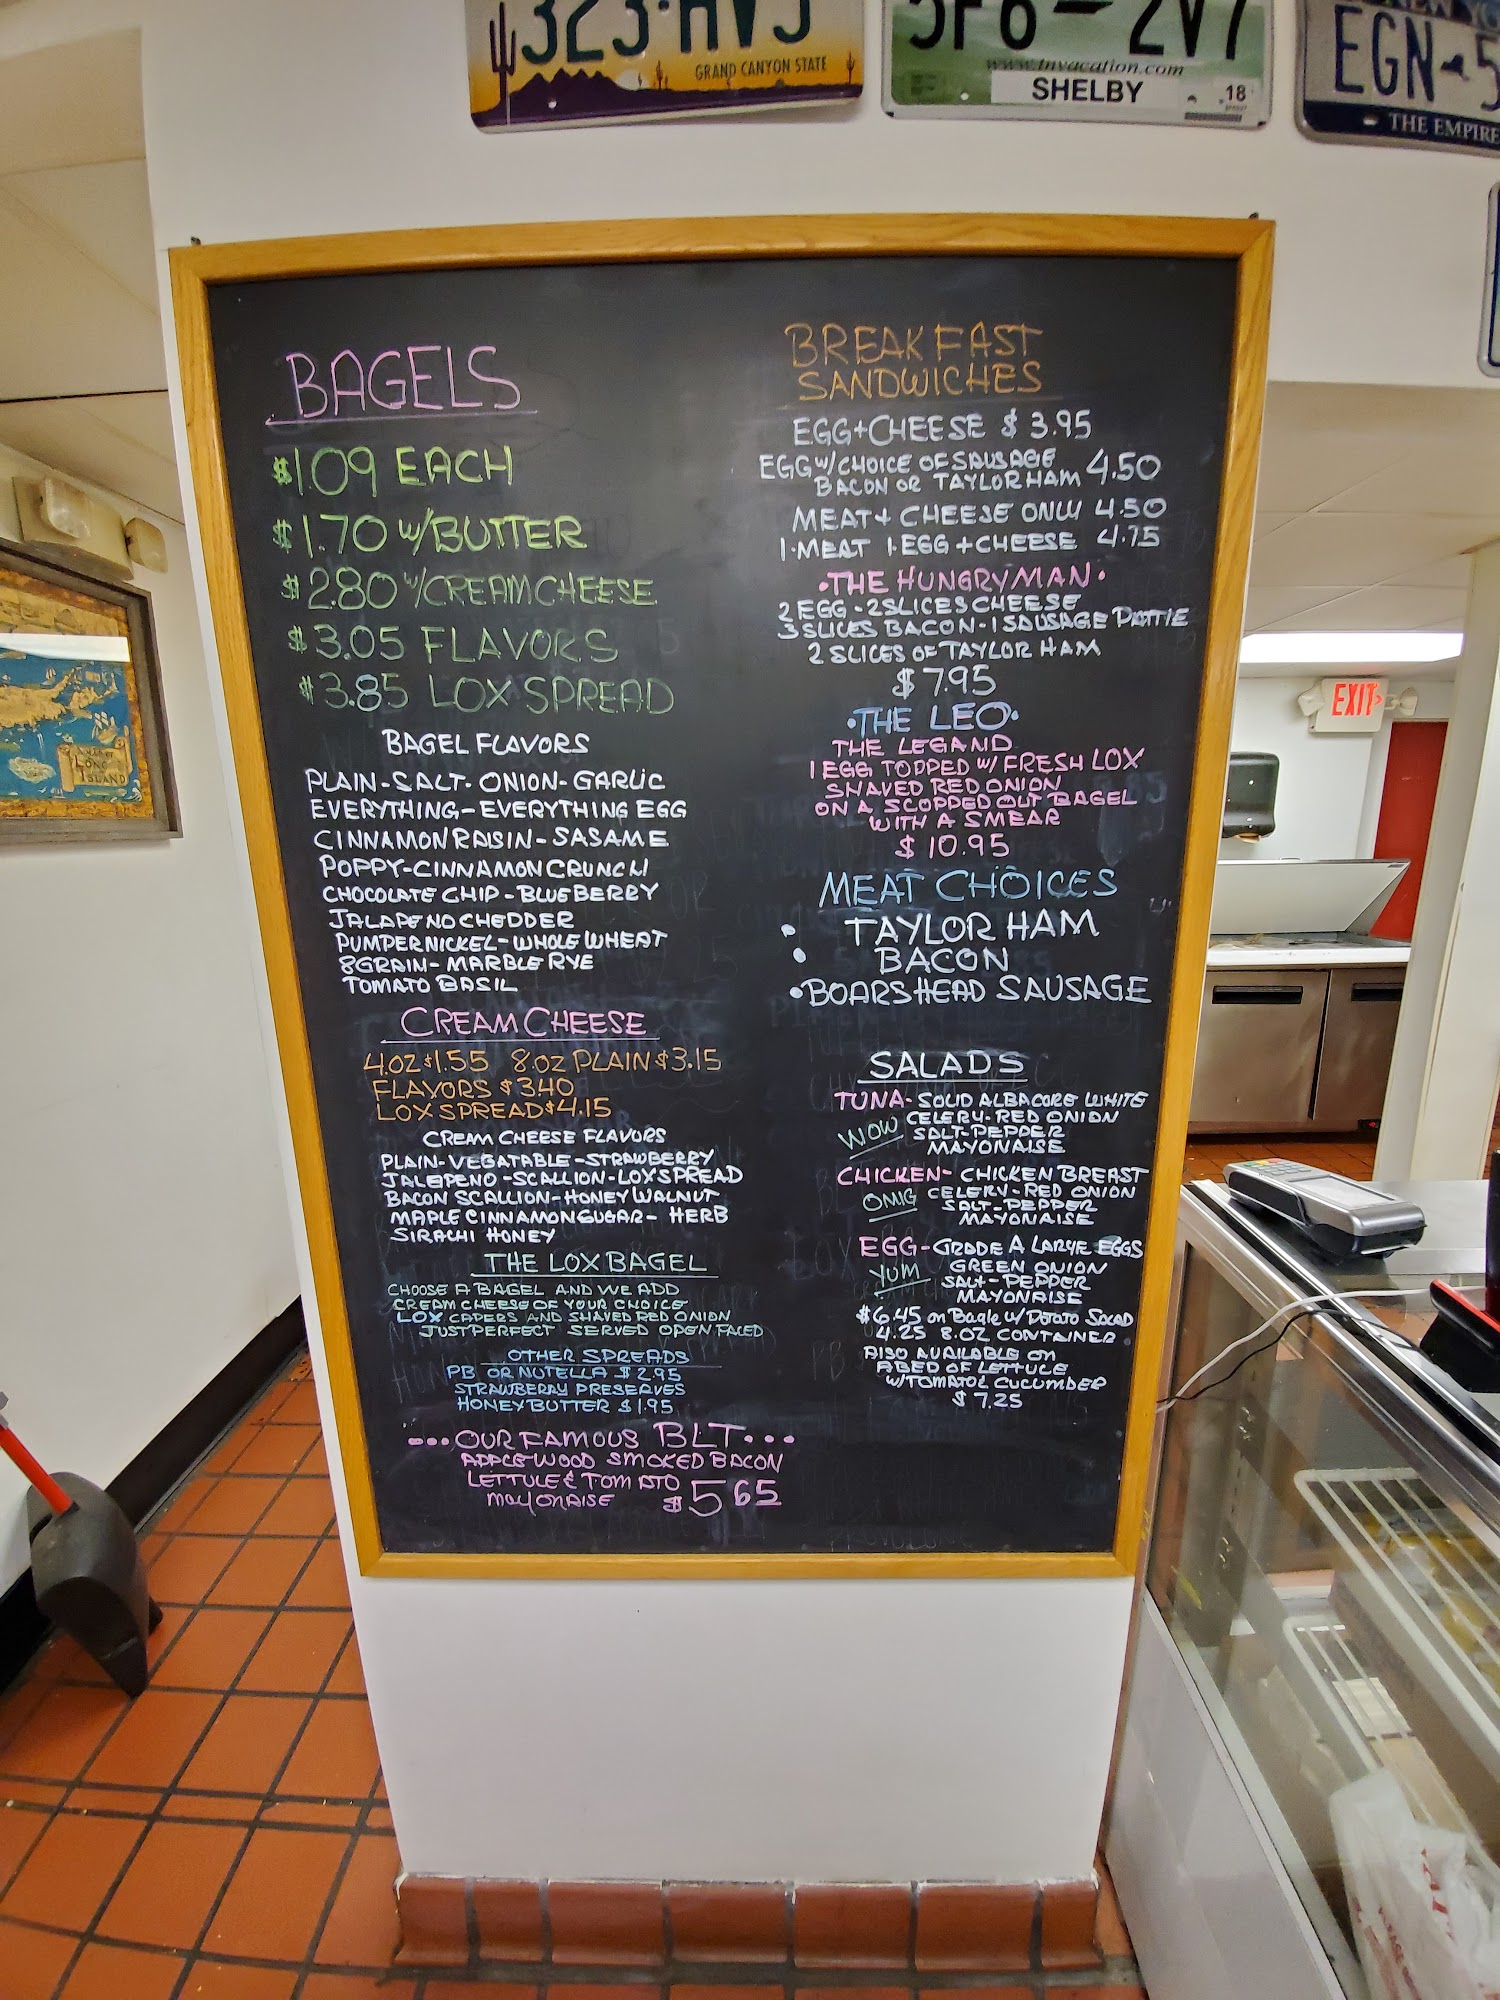 323·HVJ
GRAND CANYON STATE
5F6 2V7
www.tnvacation.com
SHELBY
18
NEW YO
EGN 5
THE EMPIRE
BAGELS
$1.09 EACH
$1.70 W/BUTTER
$2.80 W/CREAM CHEESE
$3.05 FLAVORS
$3.85 LOX SPREAD
BAGEL FLAVORS
PLAIN-SALT-ONION-GARLIC
EVERYTHING-EVERYTHING EGG
CINNAMON RAISIN-SASAME
POPPY-CINNAMON CRUNCH
CHOCOLATE CHIP-BLUEBERRY
JALAPENO CHEDDER
PUMPERNICKEL-WHOLE WHEAT
8 GRAIN-MARBLE RYE
TOMATO BASIL
CREAM CHEESE
4.OZ $1.55 8.OZ PLAIN $3.15
FLAVORS $3.40
LOX SPREAD $4.15
CREAM CHEESE FLAVORS
PLAIN-VEGATABLE-STRAWBERRY
JALEPENO-SCALLION-LOX SPREAD
BACON SCALLION-HONEY WALNUT
MAPLE CINNAMON SUGAR-HERB
SIRACHI HONEY
THE LOX BAGEL
CHOOSE A BAGEL AND WE ADD
CREAM CHEESE OF YOUR CHOICE
LOX CAPERS AND SHAVED RED ONION
JUST PERFECT SERVED OPEN FACED
OTHER SPREADS
PB OR NUTELLA $2.95
STRAWBERRY PRESERVES
HONEY BUTTER $1.95
•••OUR FAMOUS BLT•••
APPLEWOOD SMOKED BACON
LETTUCE & TOMATO
MAYONAISE $5.65
BREAKFAST
SANDWICHES
EGG+CHEESE $3.95
EGG W/CHOICE OF SAUSAGE
BACON OR TAYLOR HAM 4.50
MEAT+CHEESE ONLY 4.50
1·MEAT 1·EGG+CHEESE 4.75
•THE HUNGRYMAN•
2 EGG-2 SLICES CHEESE
3 SLICES BACON-1 SAUSAGE PATTIE
2 SLICES OF TAYLOR HAM
$7.95
•THE LEO•
THE LEGAND
1 EGG TOPPED W/FRESH LOX
SHAVED RED ONION
ON A SCOPPED OUT BAGEL
WITH A SMEAR
$10.95
MEAT CHOICES
• TAYLOR HAM
• BACON
• BOARSHEAD SAUSAGE
SALADS
TUNA-SOLID ALBACORE WHITE
WOW CELERY-RED ONION
SALT-PEPPER
MAYONAISE
CHICKEN-CHICKEN BREAST
OMG CELERY-RED ONION
SALT-PEPPER
MAYONAISE
EGG-GRADE A LARGE EGGS
YUM GREEN ONION
SALT-PEPPER
MAYONAISE
$6.45 on Bagle w/Potato Salad
4.25 8.OZ CONTAINER
ALSO AVAILABLE ON
A BED OF LETTUCE
W/TOMATO & CUCUMBER
$7.25
EXIT
LONG
ISLAND